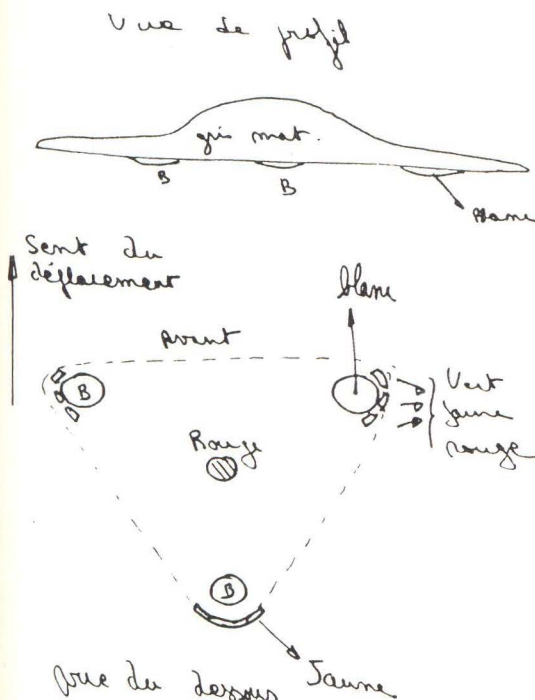 Vue de profil
gris mat.
B
B
Blanc
Sens du
déplacement
blanc
avant
B
Vert
Jaune
rouge
Rouge
B
Jaune
vue du dessous